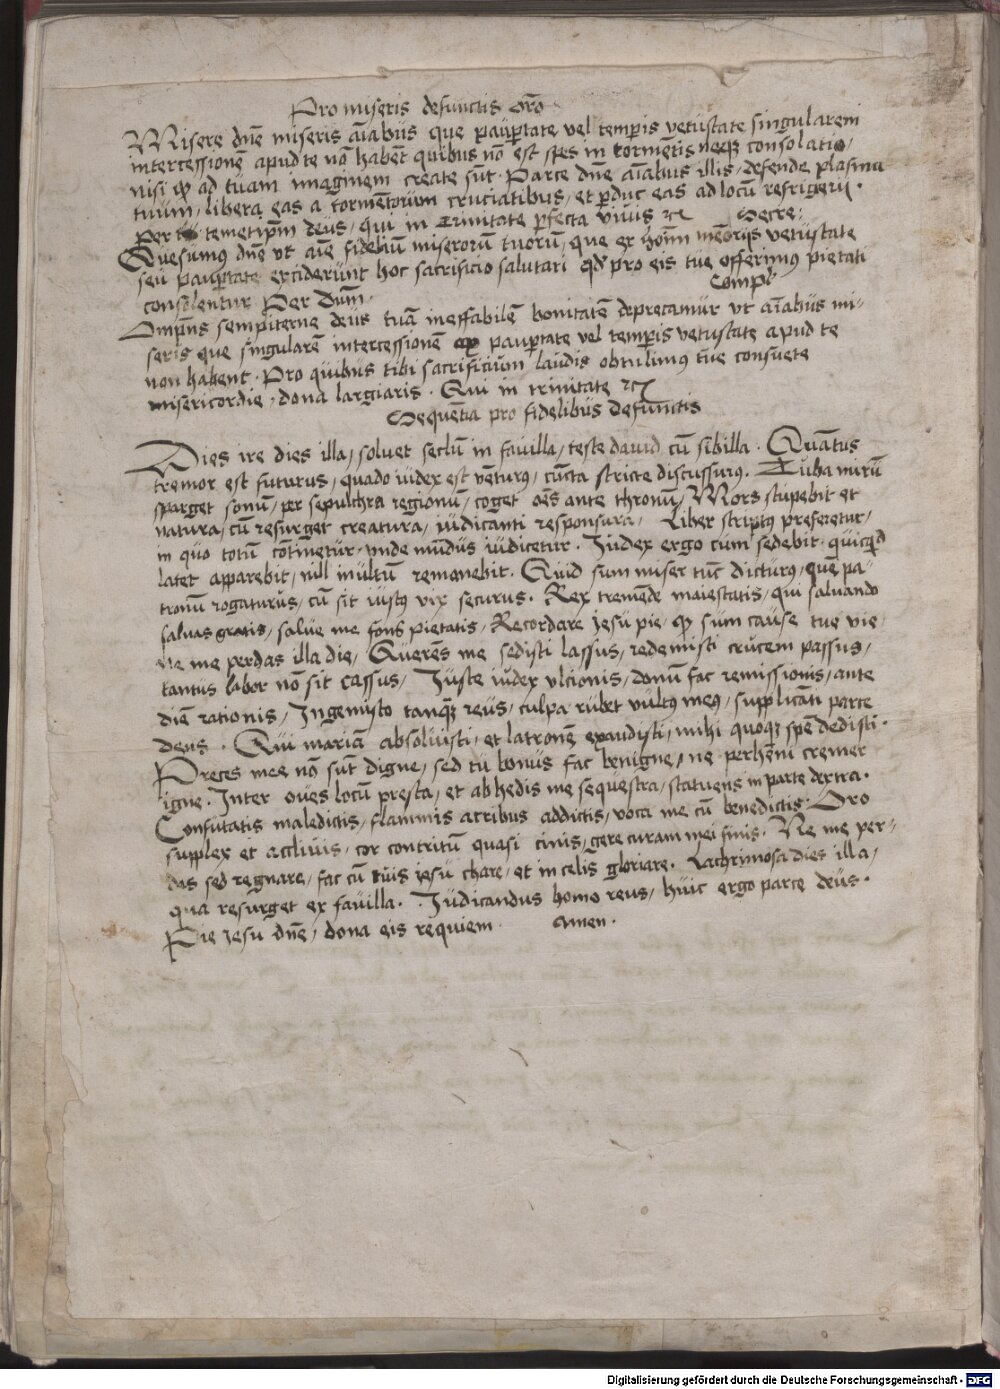 Pro miseris defunctis Oro
Misere dne miseris aiabus que paupertate vel temporis vetustate singularem
intercessione apud te no habet quibus no est spes in tormetis neque consolatio,
nisi quod ad tuam imaginem create sut. Parce dne aiabus illis, defende plasma
tuum, libera eas a tormentorum cruciatibus, et perduc eas ad locu refrigerii.
Per temetipm deus, qui in trinitate perfecta vivis etc Secre:
Quesumus dne ut aie fideliu miserorum tuoru, que ex memoriis vetustate
seu paupertate exciderunt hoc sacrificio salutari quod pro eis tue offerimus pietati
consolentur Per dum. Compl
Omps sempiterne deus tua ineffabile bonitate deprecamur ut aiabus mi-
seris que singulare intercessione paupertate vel temporis vetustate apud te
non habent. Pro quibus tibi sacrificium laudis obtulimus tue consuete
misericordie, dona largiaris. Qui in trinitate etc
Sequetia pro fidelibus defunctis
Dies ire dies illa, solvet seclu in favilla, teste david cu sibilla. Quatus
tremor est futurus, quado iudex est veturus, cucta stricte discussurus. Tuba miru
sparget sonu, per sepulchra regionu, coget oes ante thronu, Mors stupebit et
natura, cu resurget creatura, iudicanti responsura, Liber scriptus preferetur,
in quo totu cotinetur, unde mudus iudicetur. Iudex ergo cum sedebit, quicquid
latet apparebit, nill inultu remanebit. Quid sum miser tuc dicturus, que pa-
tronu rogaturus, cu sit iustus vix securus. Rex tremende maiestatis, qui salvando
salvas gratis, salve me fons pietatis, Recordare Jesu pie, quod sum cause tue vie
ne me perdas illa die, Querens me sedisti lassus, redemisti crucem passus,
tantus labor no sit cassus, Iuste iudex ultionis, donu fac remissionis, ante
die rationis, Ingemisco tanquam reus, culpa rubet vultus meus, supplicati parce
deus. Qui maria absolvisti, et latrone exaudisti, mihi quoque spe dedisti.
Preces mee no sut digne, sed tu bonus fac benigne, ne perheni cremer
igne. Inter oves locu presta, et ab hedis me sequestra, statuens in parte dextra.
Confutatis maledictis, flammis acribus addictis, voca me cu benedictis. Oro
supplex et acclivis, cor contritu quasi cinis, gere curam mei finis. Ne me per-
das sed regnare, fac cu tuis iesu chare, et in celis gloriare. Lachrimosa dies illa,
qua resurget ex favilla. Iudicandus homo reus, huic ergo parce deus.
Pie Jesu dne, dona eis requiem. Amen.
Digitalisierung gefördert durch die Deutsche Forschungsgemeinschaft - DFG